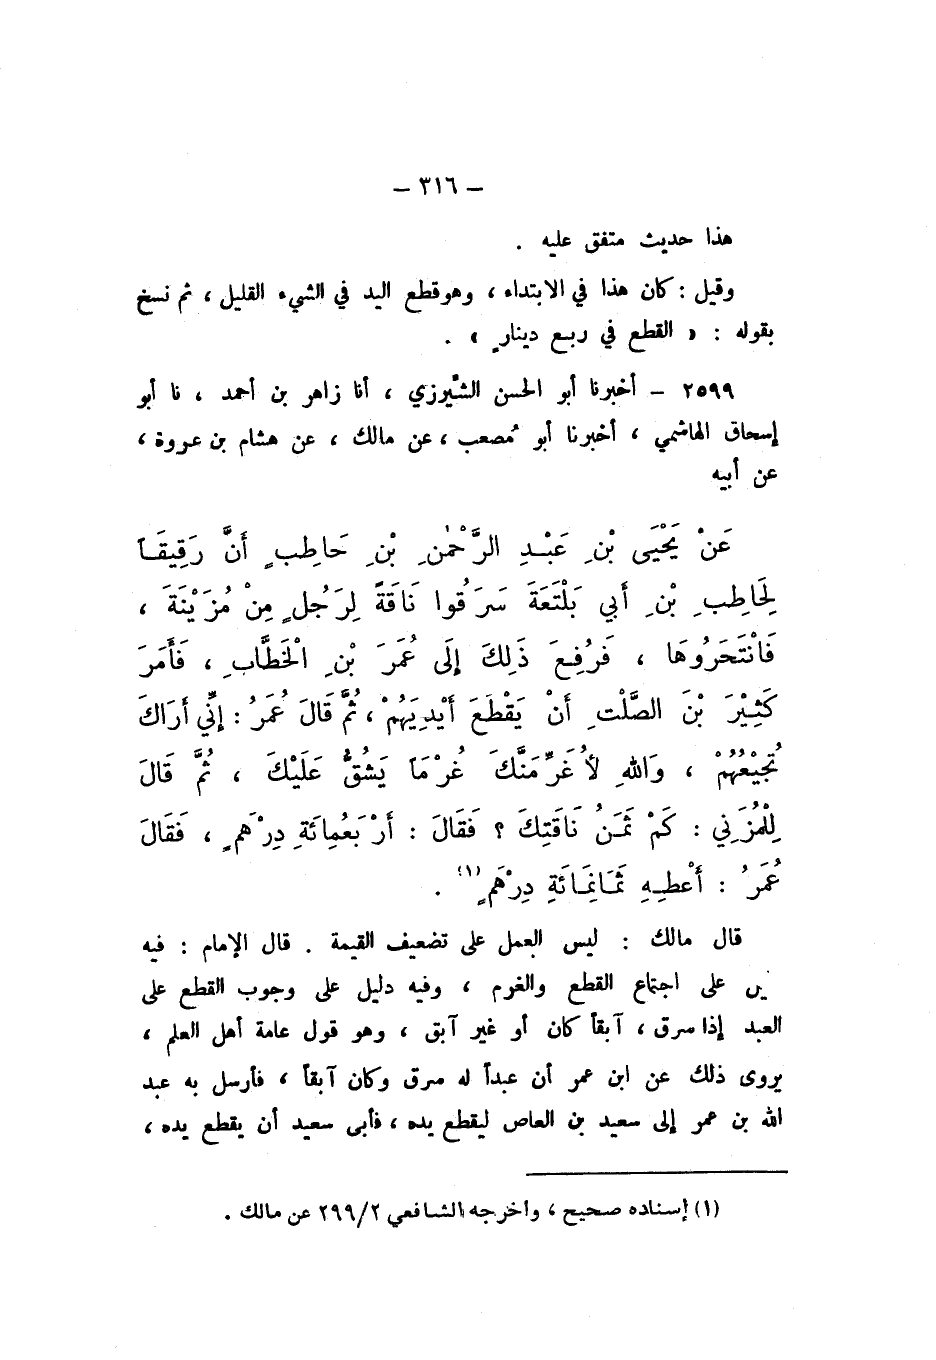 – ٣١٦ –
هذا حديث متفق عليه .
وقيل : كان هذا في الابتداء ، وهو قطع اليد في الشيء القليل ، ثم نسخ
بقوله : « القطع في ربع دينارٍ » .
٢٥٩٩ – أخبرنا أبو الحسن الشِّيرزي ، أنا زاهر بن أحمد ، نا أبو
إسحاق الهاشمي ، أخبرنا أبو مُصعب ، عن مالك ، عن هشام بن عروة ،
عن أبيه
عَنْ يَحْيَى بْنِ عَبْدِ الرَّحْمٰنِ بْنِ حَاطِبٍ أَنَّ رَقِيقَاً
لِحَاطِبِ بْنِ أَبي بَلْتَعَةَ سَرَقُوا نَاقَةً لِرَجُلٍ مِنْ مُزَيْنَةَ ،
فَانْتَحَرُوهَا ، فَرُفِعَ ذَلِكَ إِلَى عُمَرَ بْنِ الْخَطَّابِ ، فَأَمَرَ
كَثِيْرَ بْنَ الصَّلْتِ أَنْ يَقْطَعَ أَيْدِيَهُمْ ، ثُمَّ قَالَ عُمَرُ : إِنِّي أَرَاكَ
تُجِيْعُهُمْ ، وَاللهِ لأُغَرِّمَنَّكَ غُرْمَاً يَشُقُّ عَلَيْكَ ، ثُمَّ قَالَ
لِلْمُزَنِي : كَمْ ثَمَنُ نَاقَتِكَ ؟ فَقَالَ : أَرْبَعُمِائَةِ دِرْهَمٍ ، فَقَالَ
عُمَرُ : أَعْطِهِ ثَمَانِمَائَةِ دِرْهَمٍ (١) .
قال مالك : ليس العمل على تضعيف القيمة . قال الإمام : فيه
على اجتماع القطع والغرم ، وفيه دليل على وجوب القطع على
العبد إذا سرق ، آبقاً كان أو غير آبق ، وهو قول عامة أهل العلم ،
يروى ذلك عن ابن عمر أن عبداً له سرق وكان آبقاً ، فأرسل به عبد
الله بن عمر إلى سعيد بن العاص ليقطع يده ، فأبى سعيد أن يقطع يده ،
(١) إسناده صحيح ، وأخرجه الشافعي ٢/٢٩٩ عن مالك .